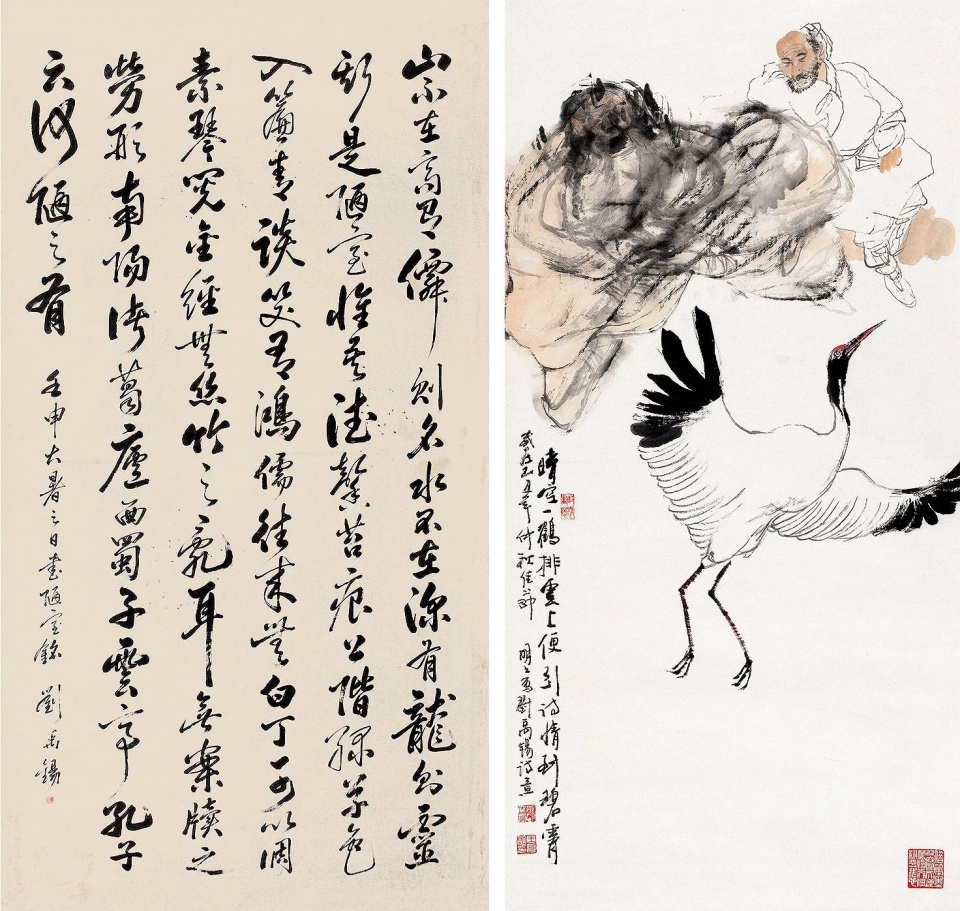 山不在高有僊則名水不在深有龍則靈
斯是陋室惟吾德馨苔痕上階綠草色
入簾青談笑有鴻儒往來無白丁可以調
素琴閱金經無絲竹之亂耳無案牘之
勞形南陽諸葛廬西蜀子雲亭孔子
云何陋之有
壬申大暑之日書陋室銘 劉禹錫
晴空一鶴排雲上便引詩情到碧霄
仲秋佳節 明之寫劉禹錫詩意